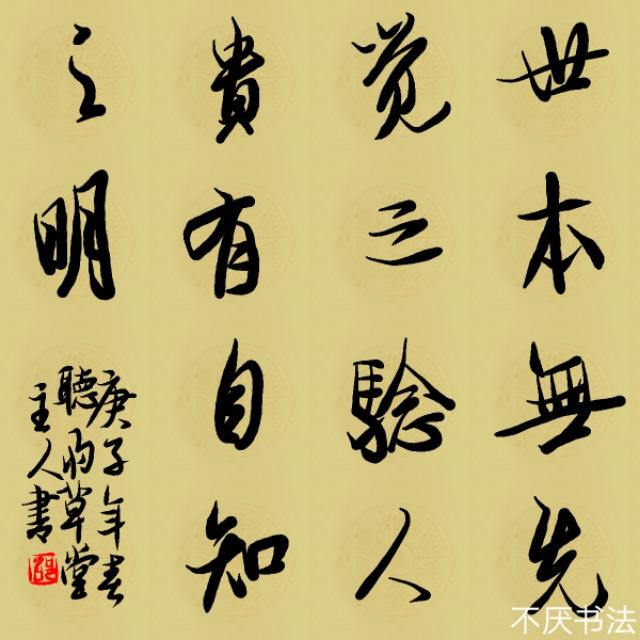 世本無先
觉之验人
貴有自知
之明
庚子年春
聽雨草堂
主人書
不厌书法